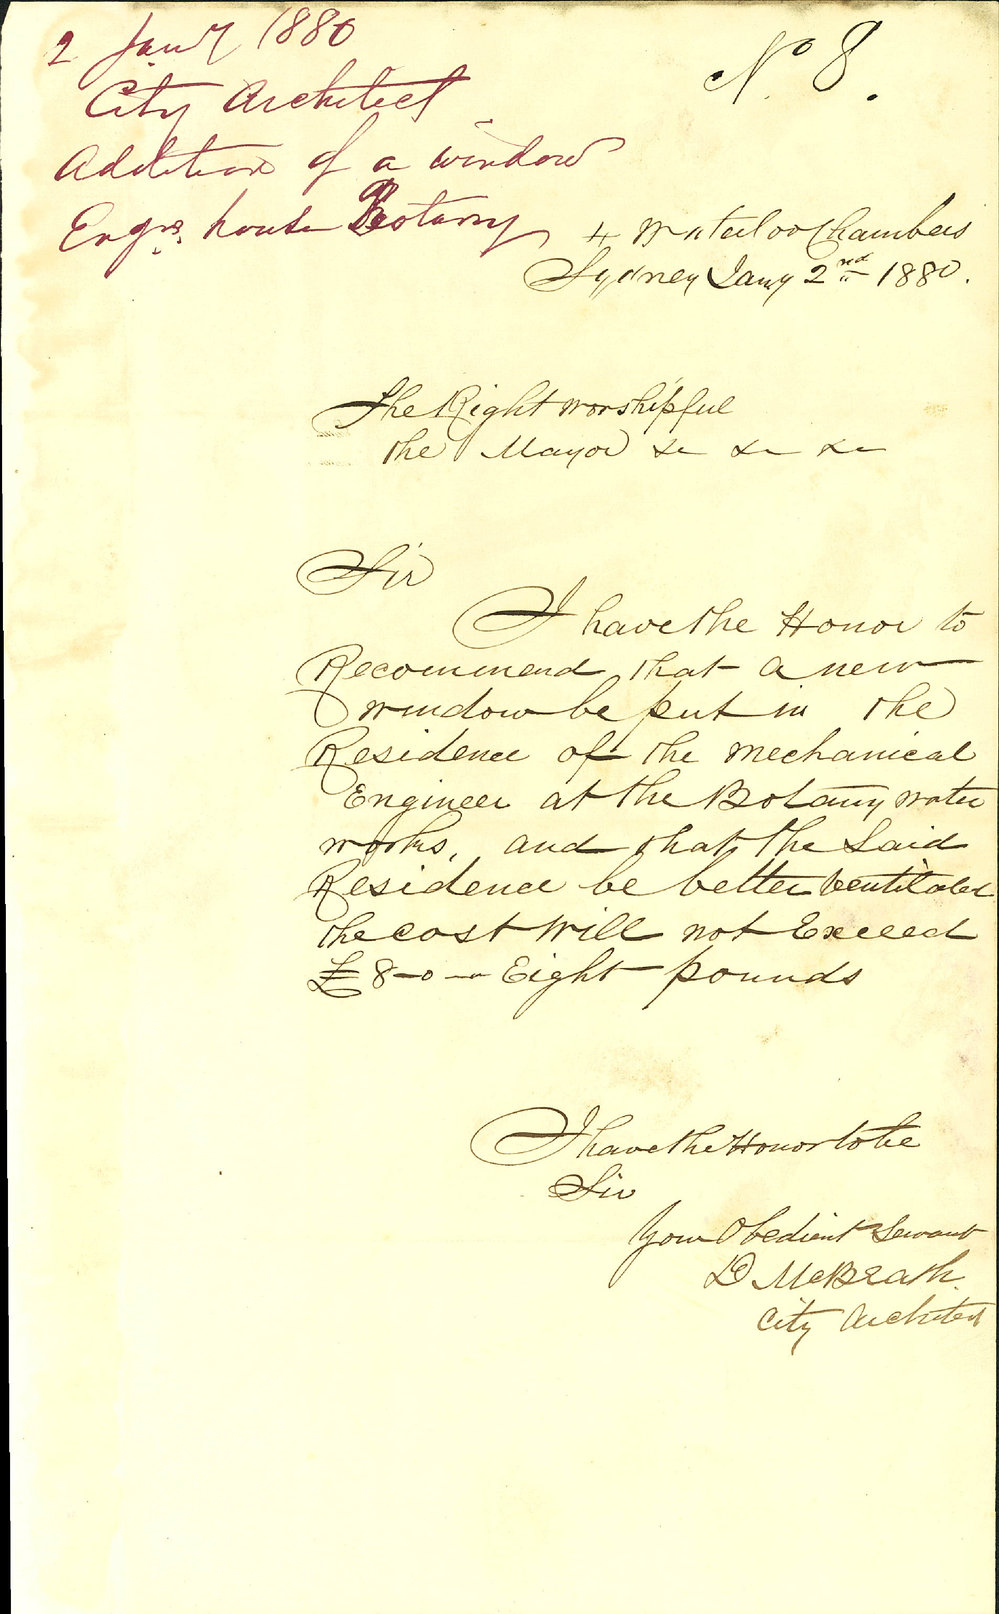 2 Jany 1880
City Architect
Addition of a window
Engrs. house Botany
No 8.
4 Waterloo Chambers
Sydney Jany 2nd 1880.
The Right Worshipful
the Mayor &c &c &c
Sir
I have the Honor to
Recommend that a new
window be put in the
Residence of the mechanical
Engineer at the Botany water
works, and that the Said
Residence be better Ventilated
the cost will not Exceed
£8-0-0 Eight pounds
I have the Honor to be
Sir
Your Obedient Servant
D McBeath.
City Architect